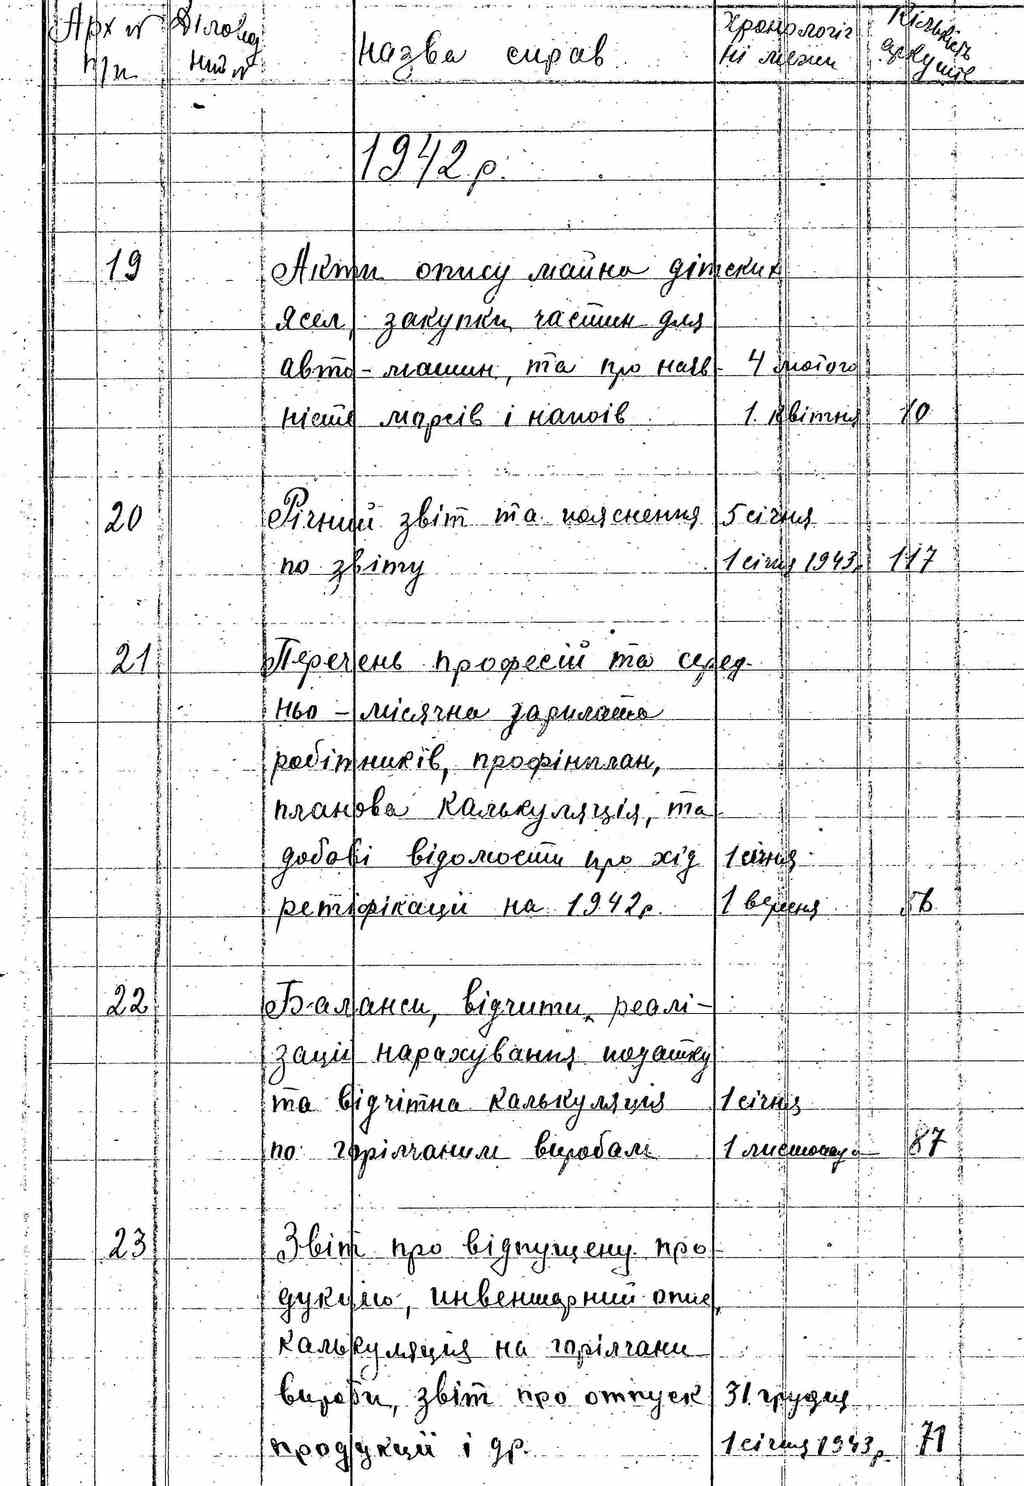 Арх № Діловод Назва справ Хронологіч Кількість
п/п ний № ні межи аркушів
1942 р.
19 Акти опису майна дітских
ясел, закупки частин для
авто-машин, та про наяв- 4 лютого
ність морсів і напоів 1. квітня 10
20 Річний звіт та пояснення 5 січня
по звіту 1 січня 1943р. 117
21 Перечень професій та серед-
ньо-місячна зарплата
робітників, профінплан,
планова калькуляція, та
добові відомости про хід 1 січня
ретіфікації на 1942р. 1 вересня
22 Баланси, відчити, реалі-
зації нарахування податку
та відчітна калькуляція 1 січня
по горілчаним виробам 1 листопада 87
23 Звіт про відпущену про-
дукцію, инвентарний опис,
калькуляция на горілчани
вироби, звіт про отпуск 31 грудня
продукції і др. 1 січня 1943р. 71